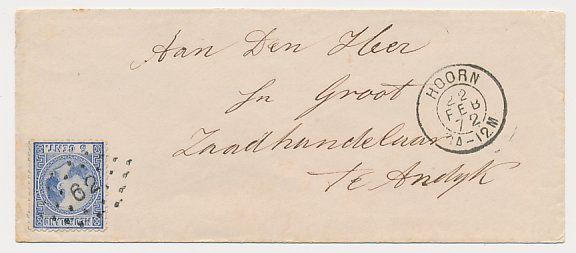 Aan Den Heer
Sn Groot
Zaadhandelaar
te Andyk
HOORN
22
FEB
72
62
5 CENT